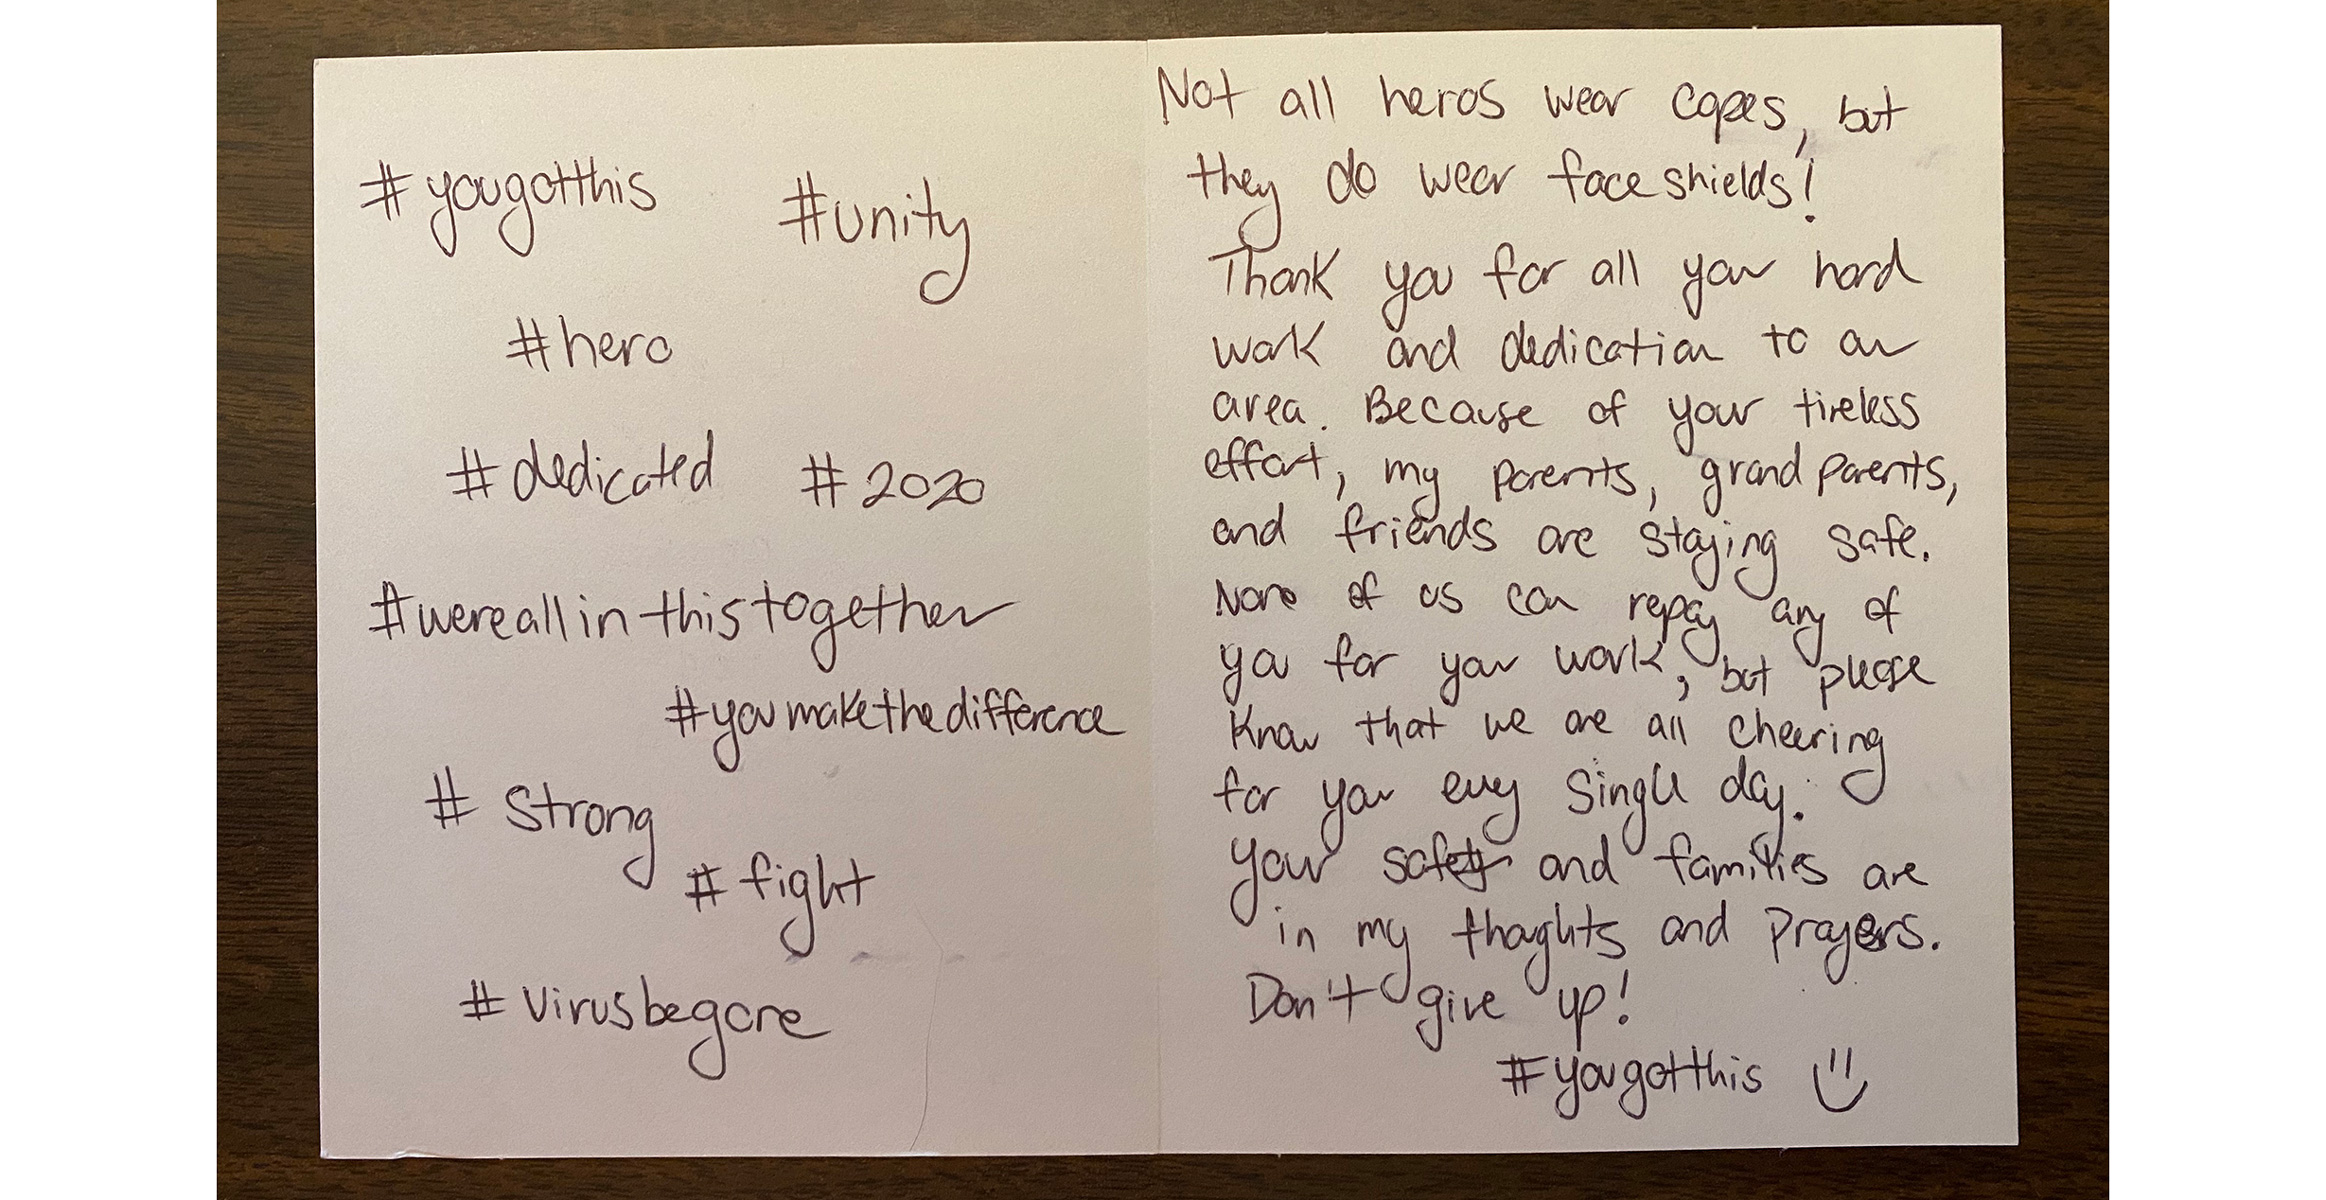 #yougotthis
#unity
#hero
#dedicated
#2020
#wereallinthistogether
#youmakethedifference
#strong
#fight
#virusbegone
Not all heros wear capes, but
they do wear face shields!
Thank you for all your hard
work and dedication to our
area. Because of your tireless
effort, my parents, grandparents,
and friends are staying safe.
None of us can repay any of
you for your work, but please
know that we are all cheering
for you every single day.
Your safety and families are
in my thoughts and prayers.
Don't give up!
#yougotthis